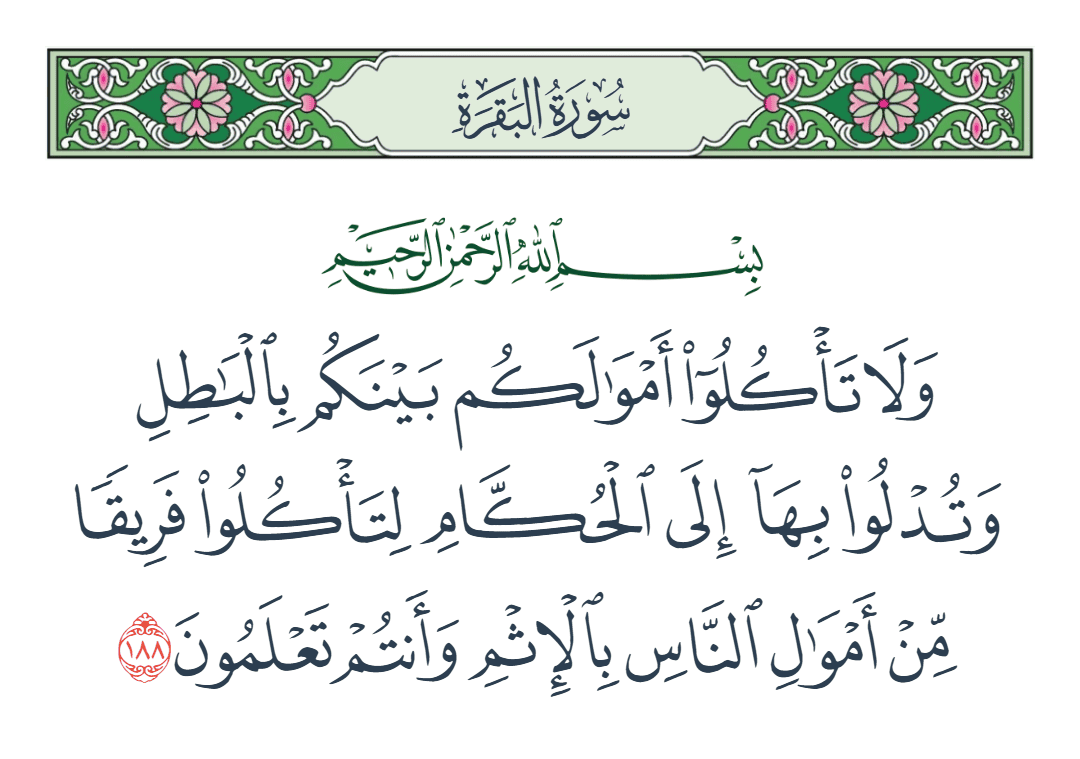 سُورَةُ البَقَرَةِ
بِسْمِ ٱللَّهِ ٱلرَّحْمَٰنِ ٱلرَّحِيمِ
وَلَا تَأْكُلُوٓا۟ أَمْوَٰلَكُم بَيْنَكُم بِٱلْبَٰطِلِ
وَتُدْلُوا۟ بِهَآ إِلَى ٱلْحُكَّامِ لِتَأْكُلُوا۟ فَرِيقًا
مِّنْ أَمْوَٰلِ ٱلنَّاسِ بِٱلْإِثْمِ وَأَنتُمْ تَعْلَمُونَ ١٨٨